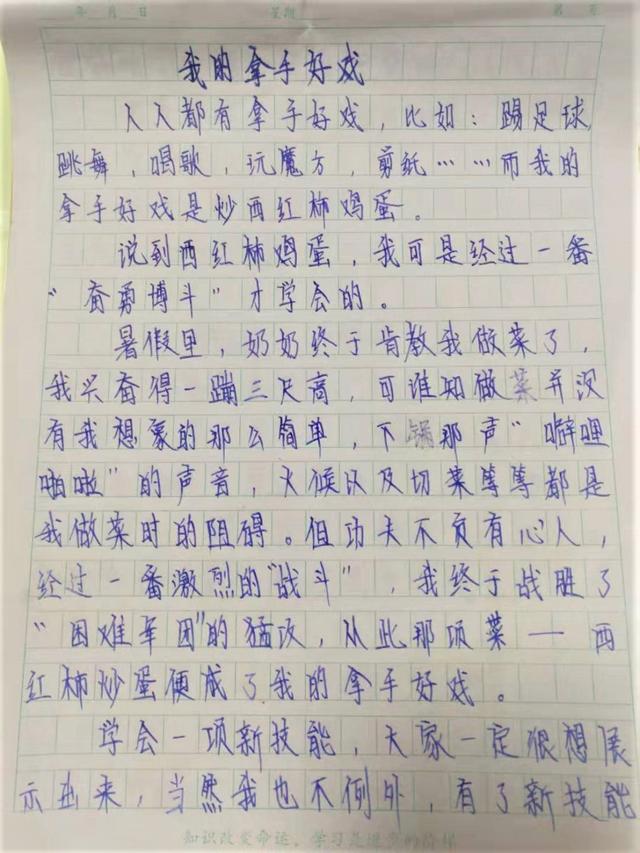 年 月 日 星期 第 页
我的拿手好戏
人人都有拿手好戏，比如：踢足球，
跳舞，唱歌，玩魔方，剪纸……而我的
拿手好戏是炒西红柿鸡蛋。
说到西红柿鸡蛋，我可是经过一番
“奋勇博斗”才学会的。
暑假里，奶奶终于肯教我做菜了，
我兴奋得一蹦三尺高，可谁知做菜并没
有我想象的那么简单，下锅那声“噼哩
啪啦”的声音，火候以及切菜等等都是
我做菜时的阻碍。但功夫不负有心人，
经过一番激烈的“战斗”，我终于战胜了
“困难军团”的猛攻，从此那项菜——西
红柿炒蛋便成了我的拿手好戏。
学会一项新技能，大家一定很想展
示出来，当然我也不例外，有了新技能
知识改变命运，学习是进步的阶梯